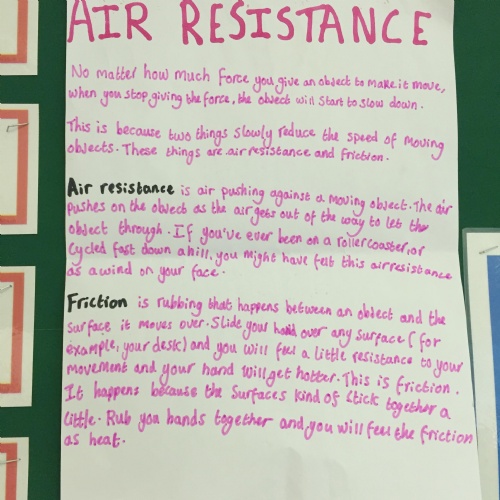 AIR RESISTANCE
No matter how much force you give an object to make it move,
when you stop giving the force, the object will start to slow down.
This is because two things slowly reduce the speed of moving
objects. These things are air resistance and friction.
Air resistance is air pushing against a moving object. The air
pushes on the object as the air gets out of the way to let the
object through. If you've ever been on a rollercoaster, or
cycled fast down a hill, you might have felt this air resistance
as a wind on your face.
Friction is rubbing that happens between an object and the
surface it moves over. Slide your hand over any surface (for
example, your desk) and you will feel a little resistance to your
movement and your hand will get hotter. This is friction.
It happens because the surfaces kind of stick together a
little. Rub you hands together and you will feel the friction
as heat.